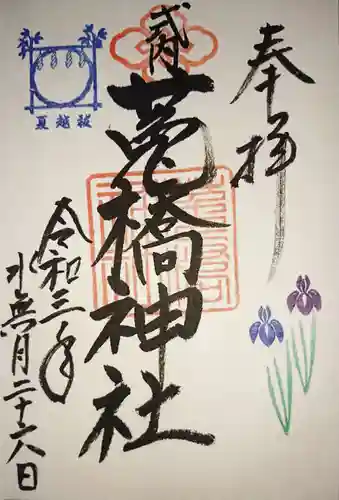 奉拝
式内
莵橋神社
夏越祓
令和三年
水無月二十六日